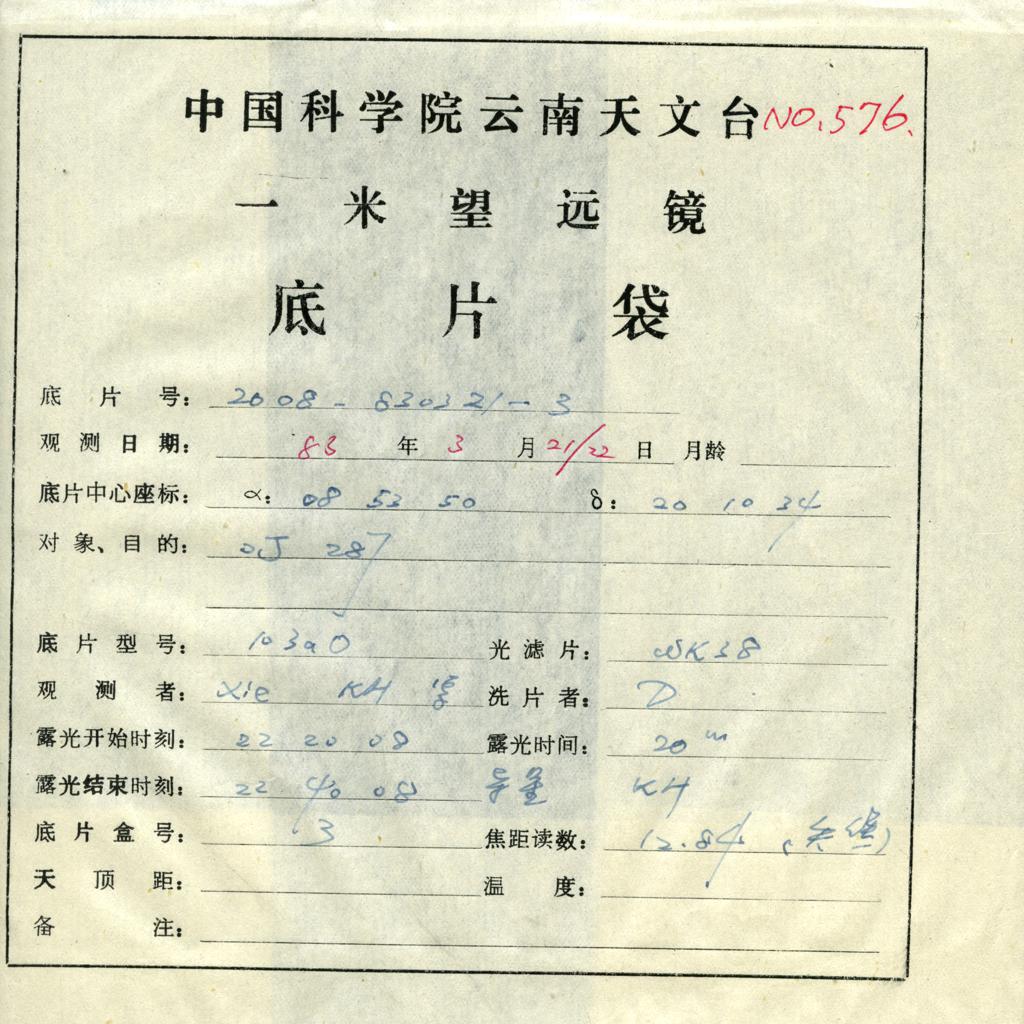 中国科学院云南天文台 NO.576.
一米望远镜
底片袋
底片号: 2008-830321-3
观测日期: 83年3月21/22日 月龄
底片中心座标: α: 08 53 50 δ: 20 10 34
对象、目的: OJ 287
底片型号: 103aO 光滤片: 38
观测者: Xie KH 洗片者: D
露光开始时刻: 22 20 08 露光时间: 20m
露光结束时刻: 22 40 08 导星 KH
底片盒号: 3 焦距读数: 12.84
天顶距: 温度:
备注: